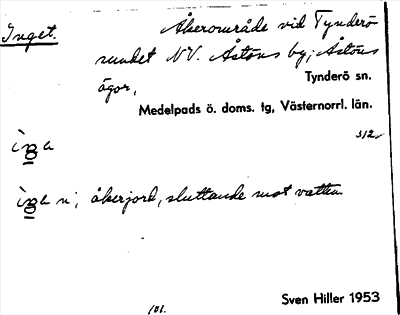 Inget. Åkerområde vid Tynderö
sundet NV. Åstöns by; Åstöns
Tynderö sn.
ägor,
Medelpads ö. doms. tg, Västernorrl. län.
312
åkerjord, sluttande mot vattnen
Sven Hiller 1953
101.